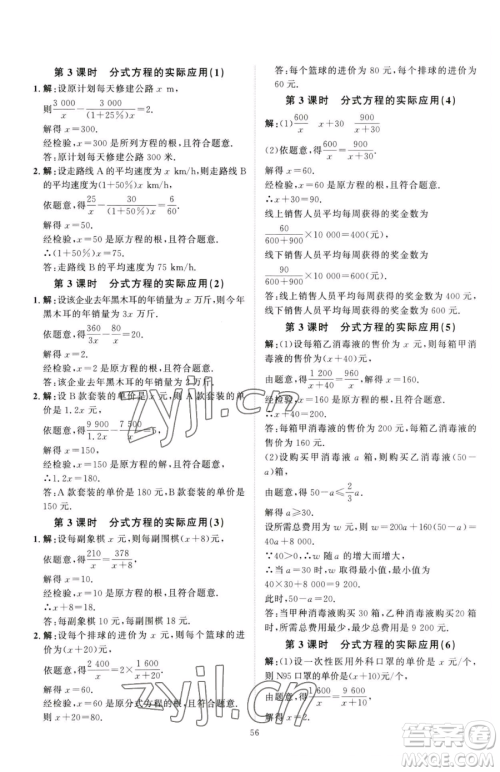 第 3 课时　分式方程的实际应用(1)
1. 解:设原计划每天修建公路 x m,
则 3 000/x − 3 000/(1+50%)x =2.
解得 x=300.
经检验,x=300 是所列方程的根,且符合题意.
答:原计划每天修建公路 300 米.
2. 解:设走路线 A 的平均速度为 x km/h,则走路线 B
的平均速度为(1+50%)x km/h,
依题意,得 25/x − 30/(1+50%)x = 6/60.
解得 x=50.
经检验,x=50 是原方程的根,且符合题意.
∴(1+50%)x=75.
答:走路线 B 的平均速度为 75 km/h.
第 3 课时　分式方程的实际应用(2)
1. 解:设该企业去年黑木耳的年销量为 x 万斤,则今年
黑木耳的年销量为 3x 万斤,
依题意,得 360/3x − 80/x =20.
解得 x=2.
经检验,x=2 是原方程的根,且符合题意.
答:该企业去年黑木耳的年销量为 2 万斤.
2. 解:设 B 款套装的单价是 x 元,则 A 款套装的单价
是 1.2x 元,
依题意,得 9 900/1.2x − 7 500/x =5,
解得 x=150.
经检验,x=150 是原方程的根,且符合题意.
∴1.2x=180.
答:A 款套装的单价是 180 元,B 款套装的单价是
150 元.
第 3 课时　分式方程的实际应用(3)
1. 解:设每副象棋 x 元,则每副围棋(x+8)元,
依题意,得 210/x = 378/(x+8),
解得 x=10.
经检验,x=10 是原方程的根,且符合题意.
∴x+8=18.
答:每副象棋 10 元,每副围棋 18 元.
2. 解:设每个排球的进价为 x 元,则每个篮球的进价为
(x+20)元,
依题意,得 2 400/x =2× 1 600/(x+20),
解得 x=60.
经检验,x=60 是原分式方程的根,且符合题意.
则 x+20=80.
答:每个篮球的进价为 80 元,每个排球的进价为
60 元.
第 3 课时　分式方程的实际应用(4)
解:(1) 600/x　x+30　900/(x+30)
(2)依题意,得 600/x = 900/(x+30).
解得 x=60.
经检验,x=60 是原方程的根,且符合题意.
∴x+30=90.
线上销售人员平均每周获得的奖金数为
60/(600+900) ×10 000=400(元),
线下销售人员平均每周获得的奖金数为
90/(600+900) ×10 000=600(元).
答:线上销售人员平均每周获得的奖金数为 400 元,
线下销售人员平均每周获得的奖金数为 600 元.
第 3 课时　分式方程的实际应用(5)
解:(1)设每箱乙消毒液的售价为 x 元,则每箱甲消
毒液的售价为(x+40)元,
由题意,得 1 200/(x+40) = 960/x,解得 x=160.
经检验,x=160 是原方程的根,且符合题意.
∴x+40=200.
答:略.
(2)设购买甲消毒液 a 箱,则购买乙消毒液(50−a)
箱,
由题意,得 2/3 a≥50−a.
解得 a≥30.
设所需总费用为 w=200a+160(50−a)=
40a+8 000.
∵40>0,∴w 随 a 的增大而增大.
∴当 a=30 时,w 最小,最小值为
40×30+8 000=9 200(元).
此时,50−a=20.
答:当甲种消毒液 30 箱,乙种消毒液 20 箱时,所
需总费用最少,最少费用为 9 200元.
第 3 课时　分式方程的实际应用(6)
解:(1)设一次性医用外科口罩的单价是 x 元/个,
则 N95 口罩的单价是(x+10)元/个,
由题意,得 1 600/x = 9 600/(x+10),
56
zyjl.cn
zyjl.cn
答案圈
MXQE.COM